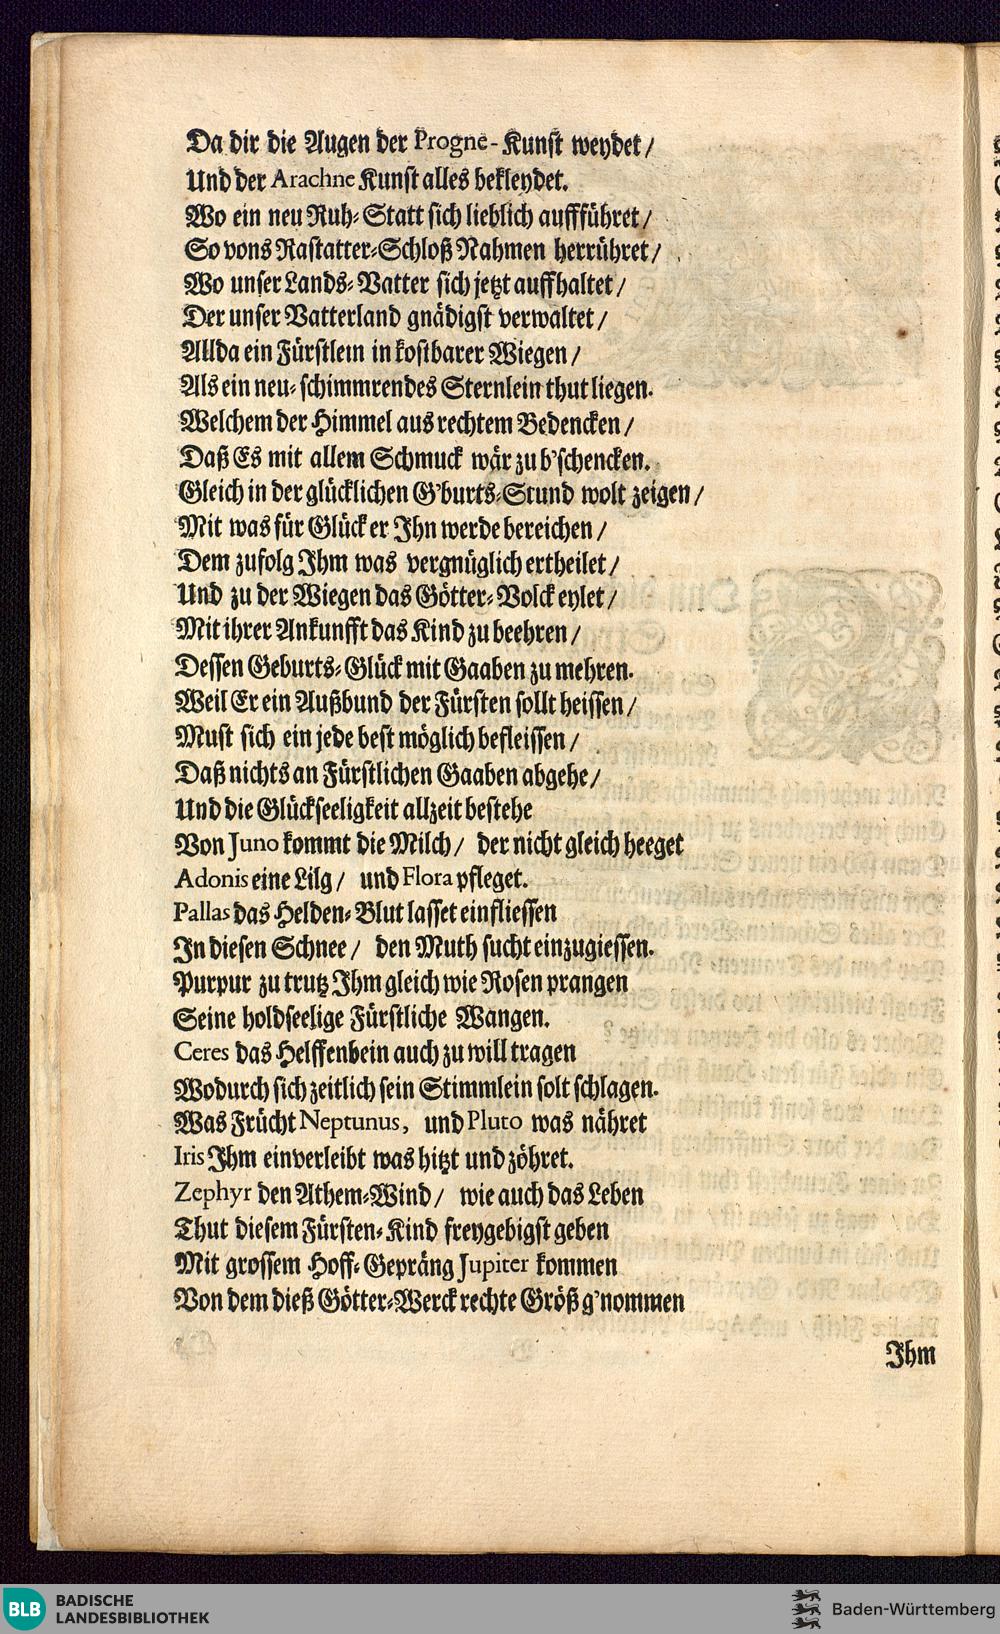 Da dir die Augen der Progne-Kunst weydet/
Und der Arachne Kunst alles bekleydet.
Wo ein neu Ruh-Statt sich lieblich auffführet/
So vons Rastatter-Schloß Nahmen herrühret/
Wo unser Lands-Vatter sich jetzt auffhaltet/
Der unser Vatterland gnädigst verwaltet/
Allda ein Fürstlein in kostbarer Wiegen/
Als ein neu-schimmrendes Sternlein thut liegen.
Welchem der Himmel aus rechtem Bedencken/
Daß Es mit allem Schmuck wär zu b'schencken.
Gleich in der glücklichen G'burts-Stund wolt zeigen/
Mit was für Glück er Ihn werde bereichen/
Dem zufolg Ihm was vergnüglich ertheilet/
Und zu der Wiegen das Götter-Volck eylet/
Mit ihrer Ankunfft das Kind zu beehren/
Dessen Geburts-Glück mit Gaaben zu mehren.
Weil Er ein Außbund der Fürsten sollt heissen/
Must sich ein jede best möglich befleissen/
Daß nichts an Fürstlichen Gaaben abgehe/
Und die Glückseeligkeit allzeit bestehe
Von Juno kommt die Milch/ der nicht gleich heeget
Adonis eine Lilg/ und Flora pfleget.
Pallas das Helden-Blut lasset einfliessen
In diesen Schnee/ den Muth sucht einzugiessen.
Purpur zu trutz Ihm gleich wie Rosen prangen
Seine holdseelige Fürstliche Wangen.
Ceres das Helffenbein auch zu will tragen
Wodurch sich zeitlich sein Stimmlein solt schlagen.
Was Frücht Neptunus, und Pluto was nähret
Iris Ihm einverleibt was hitzt und zöhret.
Zephyr den Athem-Wind/ wie auch das Leben
Thut diesem Fürsten-Kind freygebigst geben
Mit grossem Hoff-Gepräng Jupiter kommen
Von dem dieß Götter-Werck rechte Größ g'nommen
Ihm
BLB BADISCHE
LANDESBIBLIOTHEK
Baden-Württemberg